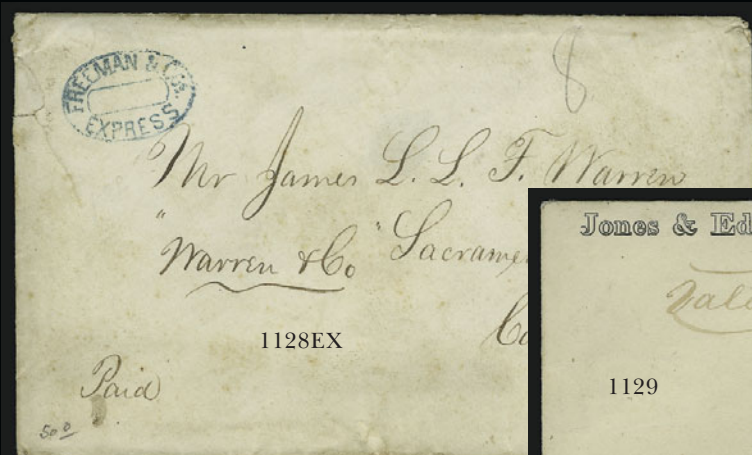 FREEMAN & CO'S.
EXPRESS
8
Mr James L. L. F. Warren
"Warren & Co" Sacrame
Ca
1128EX
Paid
50 0
Jones & Ed
1129